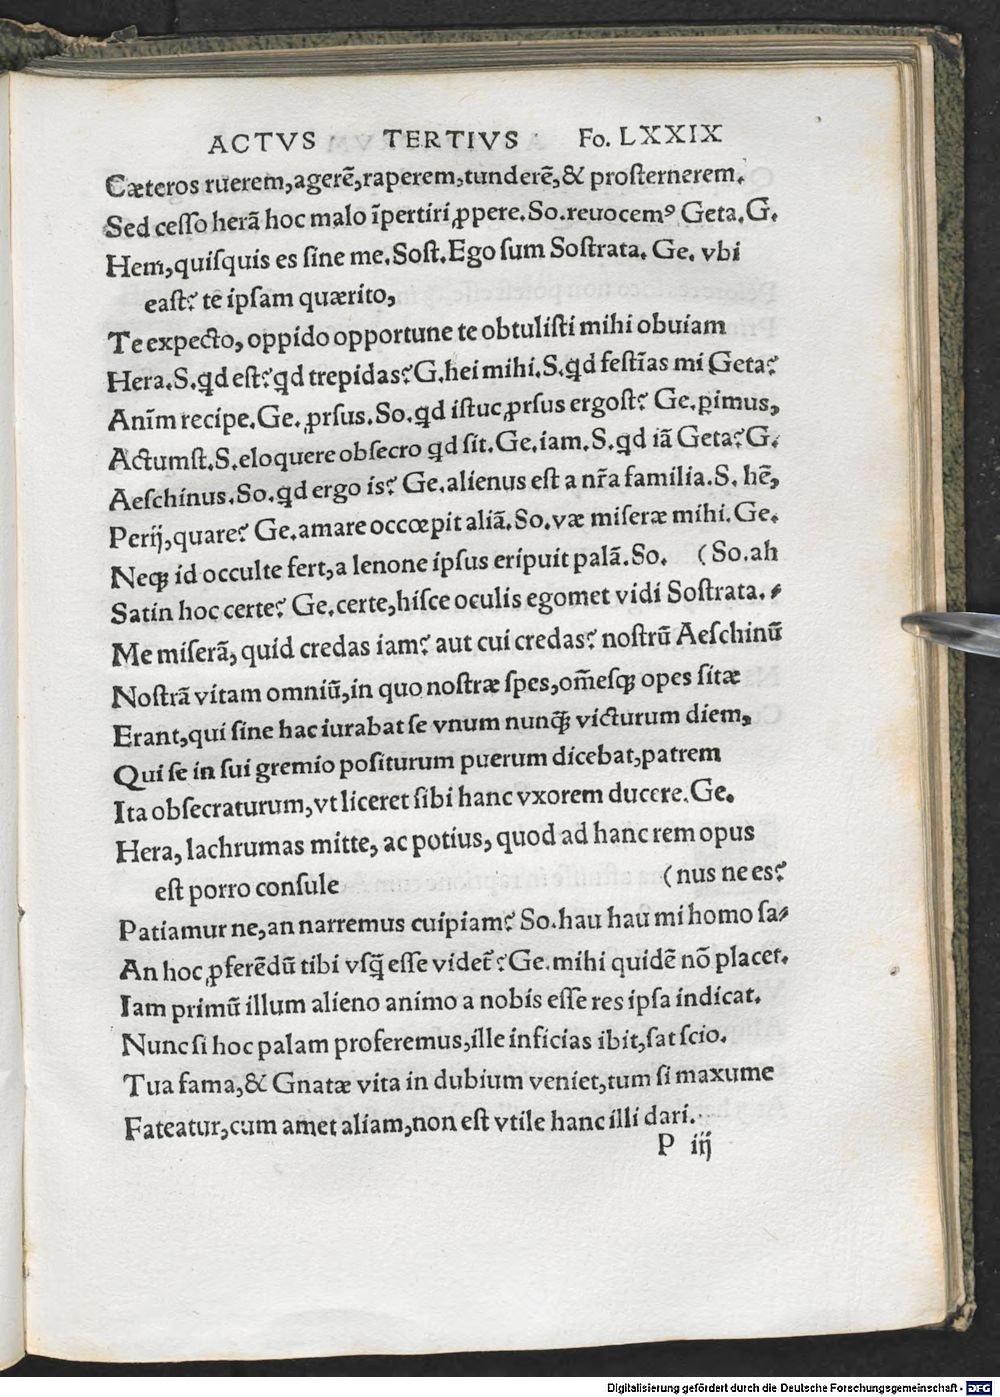 ACTVS TERTIVS Fo. LXXIX
Cæteros ruerem,agerẽ,raperem,tunderẽ,& proſternerem.
Sed ceſſo herã hoc malo ĩpertiri ꝓpere.So.reuocemꝰ Geta.G.
Hem,quiſquis es ſine me.Soſt.Ego ſum Soſtrata. Ge. vbi
eaſt? te ipſam quærito,
Te expecto, oppido opportune te obtuliſti mihi obuiam
Hera.S.qd eſt?qd trepidas?G.hei mihi.S.qd feſtĩas mi Geta?
Anĩm recipe.Ge.ꝓrſus.So.qd iſtuc ꝓrſus ergoſt? Ge.ꝑimus,
Actumſt.S.eloquere obſecro qd ſit.Ge.iam.S.qd iã Geta?G.
Aeſchinus.So.qd ergo is? Ge.alienus eſt a nr̃a familia.S. hẽ,
Perij,quare? Ge.amare occœpit aliã.So.væ miſeræ mihi.Ge.
Neqꝫ id occulte fert,a lenone ipſus eripuit palã.So. (So.ah
Satin hoc certe? Ge.certe,hiſce oculis egomet vidi Soſtrata.⸗
Me miſerã, quid credas iam? aut cui credas? noſtrũ Aeſchinũ
Noſtrã vitam omniũ,in quo noſtræ ſpes,om̃eſqꝫ opes ſitæ
Erant,qui ſine hac iurabat ſe vnum nunq̃ꝫ victurum diem,
Qui ſe in ſui gremio poſiturum puerum dicebat,patrem
Ita obſecraturum,vt liceret ſibi hanc vxorem ducere.Ge.
Hera, lachrumas mitte, ac potius, quod ad hanc rem opus
eſt porro conſule (nus ne es?
Patiamur ne,an narremus cuipiam? So.hau hau mi homo ſa⸗
An hoc ꝓferẽdũ tibi vſq̃ eſſe videt̃? Ge.mihi quidẽ nõ placet.
Iam primũ illum alieno animo a nobis eſſe res ipſa indicat.
Nunc ſi hoc palam proferemus,ille inficias ibit,ſat ſcio.
Tua fama,& Gnatæ vita in dubium veniet,tum ſi maxume
Fateatur,cum amet aliam,non eſt vtile hanc illi dari.
P iij
Digitalisierung gefördert durch die Deutsche Forschungsgemeinschaft - DFG